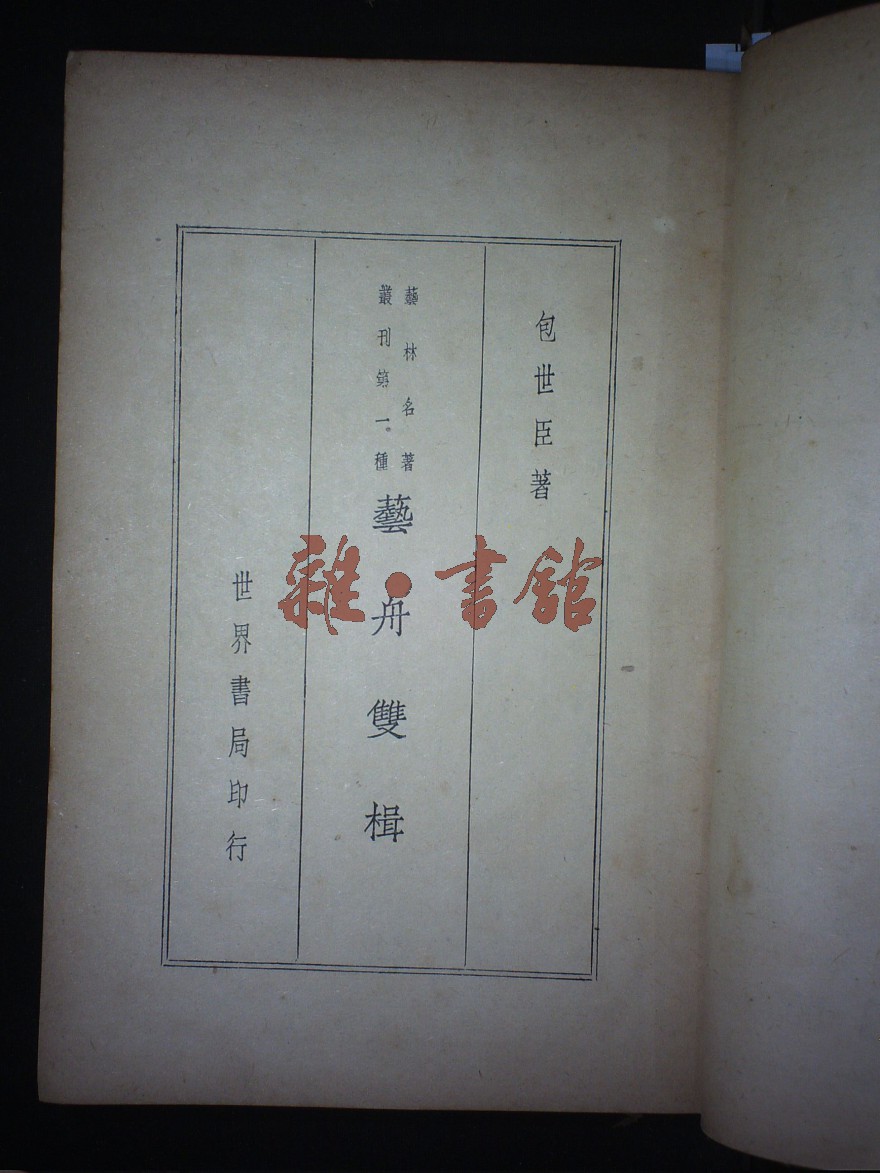 包世臣著
藝林名著
叢刊第一種
藝舟雙楫
世界書局印行
雜·書館